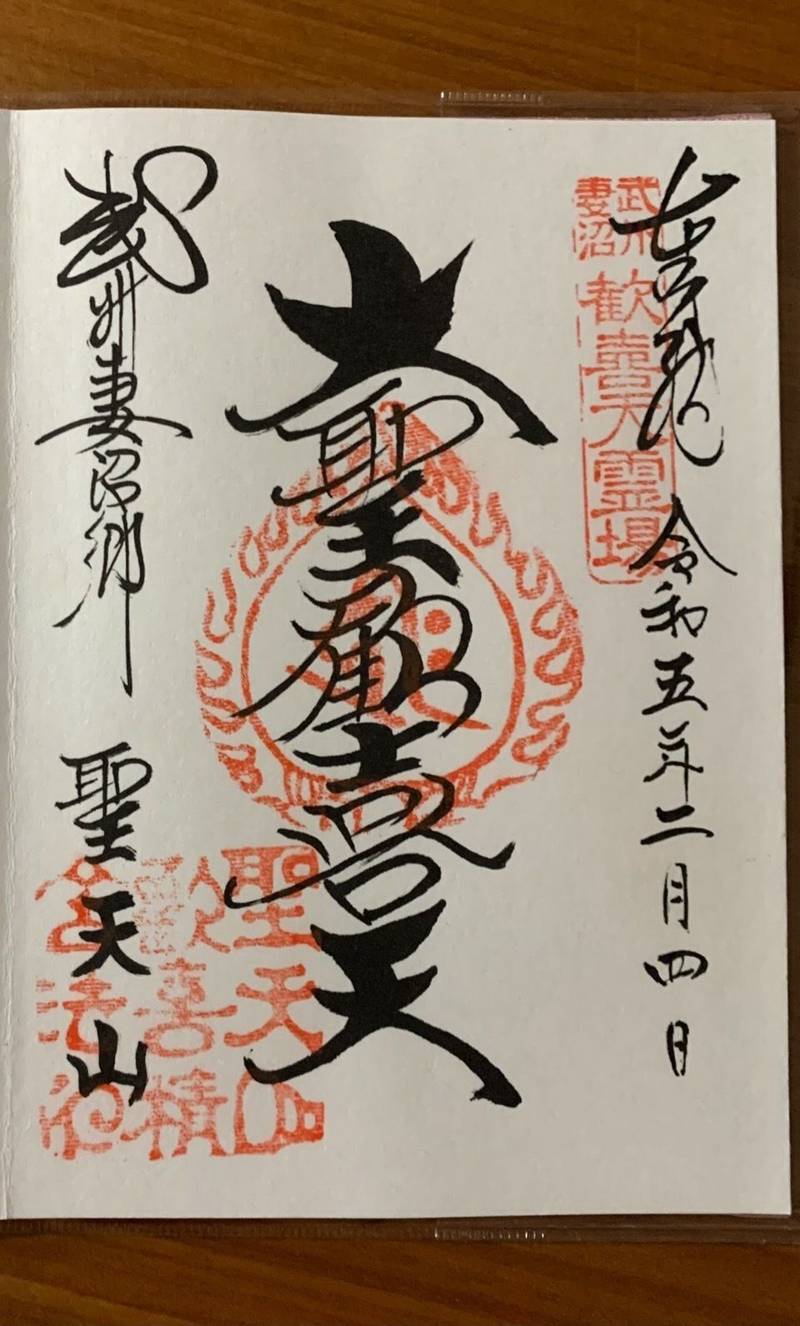 令和五年二月四日
武州
妻沼
歓喜天霊場
大聖歓喜天
武州妻沼郷 聖天山
聖天山
歓喜積